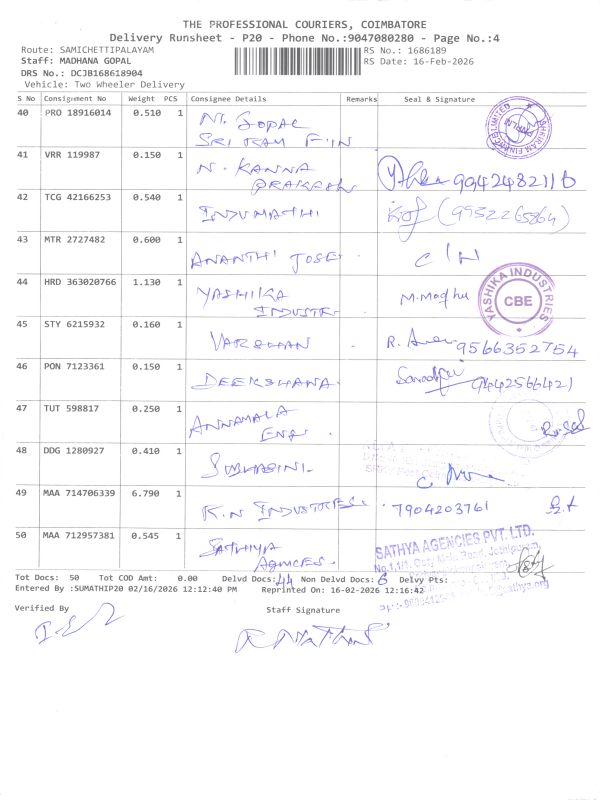 THE PROFESSIONAL COURIERS, COIMBATORE
Delivery Runsheet - P20 - Phone No.:9047080280 - Page No.:4
Route: SAMICHETTIPALAYAM RS No.: 1686189
Staff: MADHANA GOPAL RS Date: 16-Feb-2026
DRS No.: DCJB168618904
Vehicle: Two Wheeler Delivery
S No Consignment No Weight PCS Consignee Details Remarks Seal & Signature
40 PRO 18916014 0.510 1 M. GOPAL
SRI RAM FIN
41 VRR 119987 0.150 1 N. KANNA 9942482116
PRAKASH
42 TCG 42166253 0.540 1 INDUMATHI (9952265864)
43 MTR 2727482 0.600 1 ANANTHI JOSE
44 HRD 363020766 1.130 1 YASHIKA M.Madhu YASHIKA INDUSTRIES CBE
INDUSTR
45 STY 6215932 0.160 1 VARSHAN 9566352754
46 PON 7123361 0.150 1 DEEKSHANA 9442566421
47 TUT 598817 0.250 1 ANNAMALA
ENG
48 DDG 1280927 0.410 1 SUBHASINI
49 MAA 714706339 6.790 1 K.N INDUSTRIES 7904203761
50 MAA 712957381 0.545 1 SATHYA SATHYA AGENCIES PVT. LTD.
AGENCIES
Tot Docs: 50 Tot COD Amt: 0.00 Delvd Docs: 44 Non Delvd Docs: 6 Delvy Pts:
Entered By :SUMATHIP20 02/16/2026 12:12:40 PM Reprinted On: 16-02-2026 12:16:42
Verified By Staff Signature